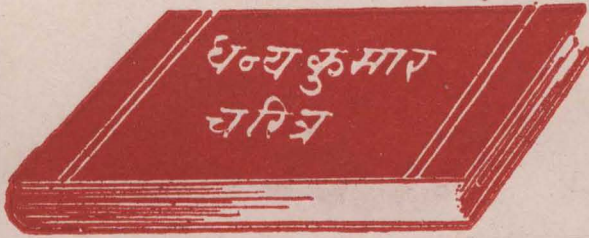 धन्य कुमार
चरित्र